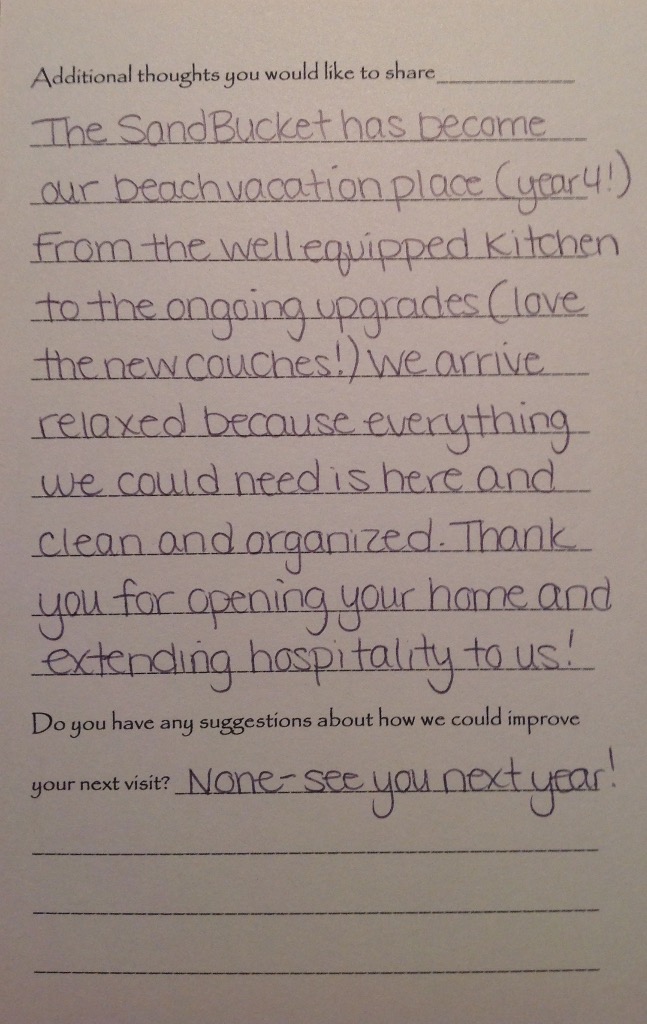 Additional thoughts you would like to share____________
The SandBucket has become
our beach vacation place (year 4!)
From the well equipped kitchen
to the ongoing upgrades (love
the new couches!) we arrive
relaxed because everything
we could need is here and
clean and organized. Thank
you for opening your home and
extending hospitality to us!
Do you have any suggestions about how we could improve
your next visit? None - see you next year!